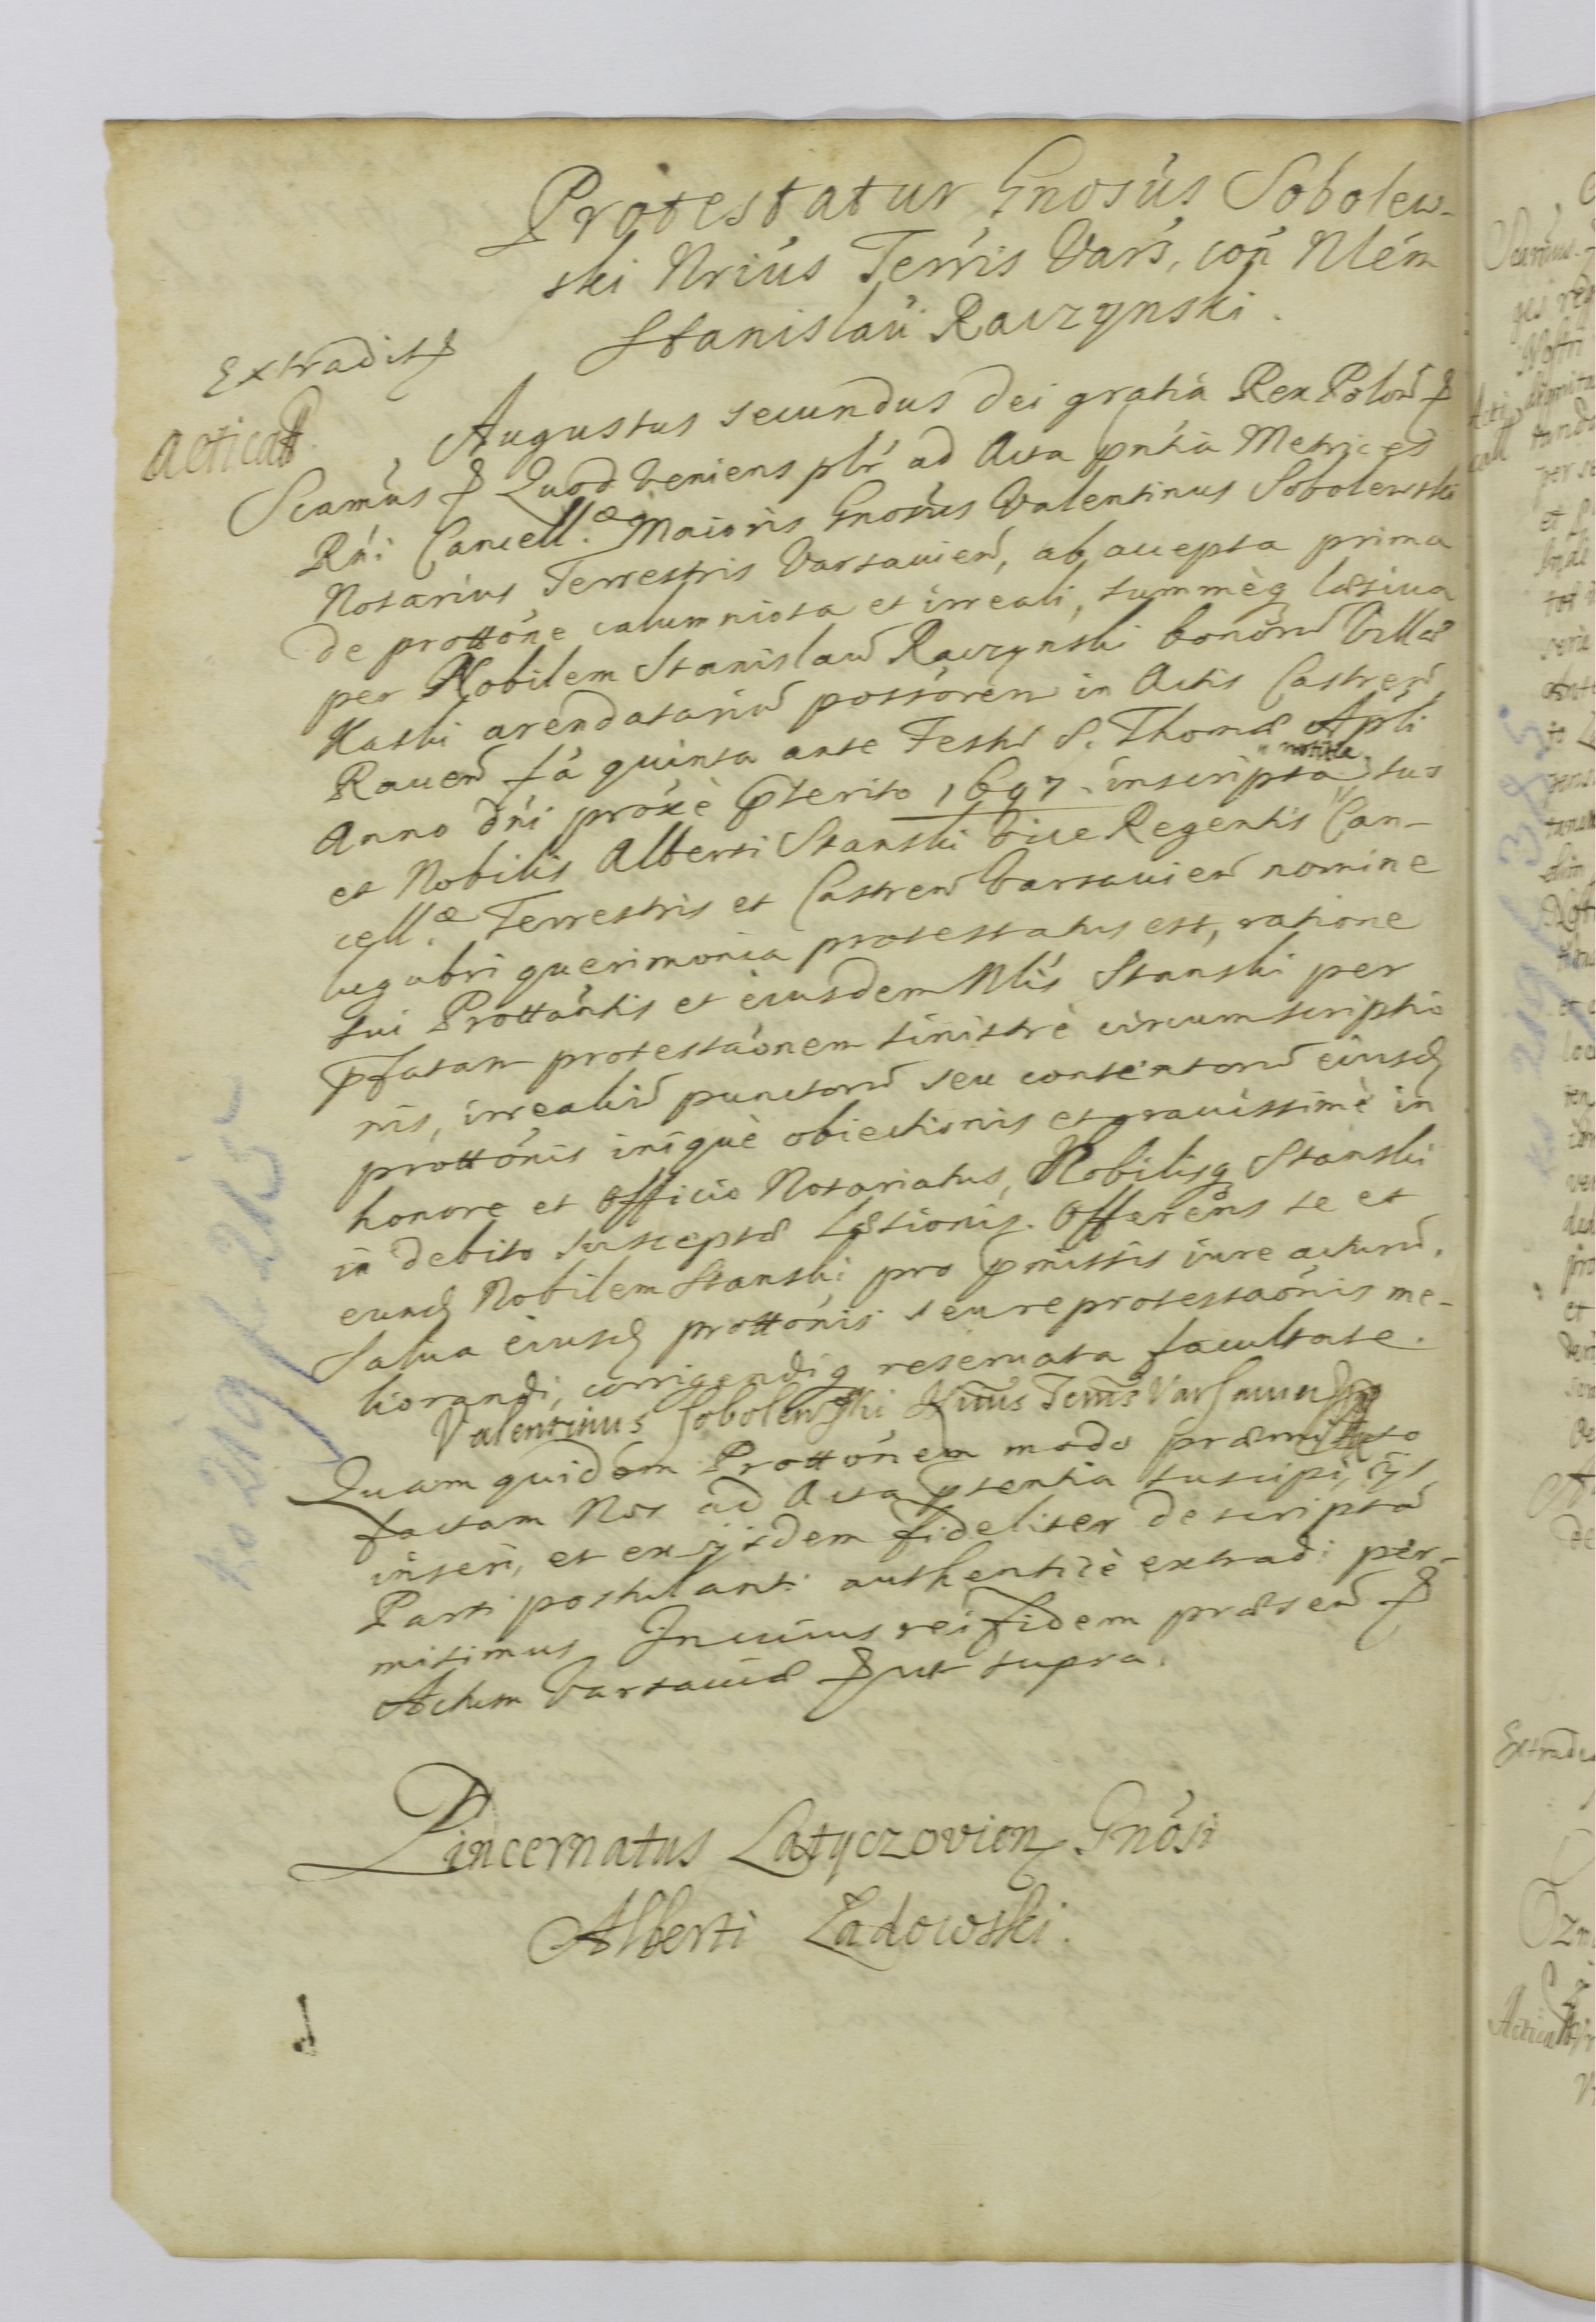 Protestatur Gnosús Sobolew-
ski Nriús Terris Vars, con Nlém
Stanislaú Raczynski.
Extradit
acticat
Augustus secundus Dei gratia Rex Polon
Scamús Quod veniens plr ad Acta pntia Metrices
Rñi Cancell:æ Maioris Gnosús Valentinus Sobolewski
Notarius Terrestris Varsavien, ab accepta prima
de prottóne calumniosa et irreali, summèq læsiva
per Nobilem Stanislau Raczynski bonoru Villæ
Kaski arendatariu possóren in Actis Castren
Raven fá quinta ante Festu S. Thomæ Apli
Anno dñi próxè pterito 1697. inscripta notitia, suo
et Nobilis Alberti Stanski vice Regentis Can-
cell:æ Terrestris et Castren Varsavien nomine
lugubri querimonia protestatus est, ratione
sui Prottántis et eiusdem Nlis Stanski per
pfatam protestaónem sinistrè circumscriptio
nis, irrealiu punctoru seu contentoru eiusd
prottónis iniquè obiectionis et gravissimè in
honore et officio Notariatus, Nobilisq Stanski
in debito susceptæ Læsionis. Offerens se et
eund Nobilem Stanski pro pmissis iure acturu.
Salva eiusd prottónis seu reprotestaónis me-
liorandi, corrigendiq reservata facultate.
Valentinus Sobolewski
Quam quidem Prottónem modo præmisso
factam Nos ad Acta psentia suscipi, ijs
inseri, et ex ijsdem fideliter descripta
Parti postulanti authenticè extradi per-
misimus. In cuius rei fidem præsen
Actum Varsaviæ ut supra.
Pincernatus Latyczovien Gnósi
Alberti Ladowski.